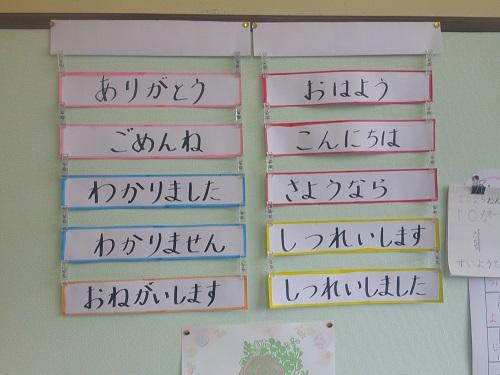 ありがとう
ごめんね
わかりました
わかりません
おねがいします
おはよう
こんにちは
さようなら
しつれいします
しつれいしました
10が
すいようび